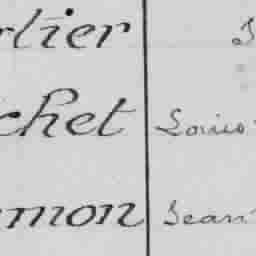 rtier J
chet Louis
mon Jean